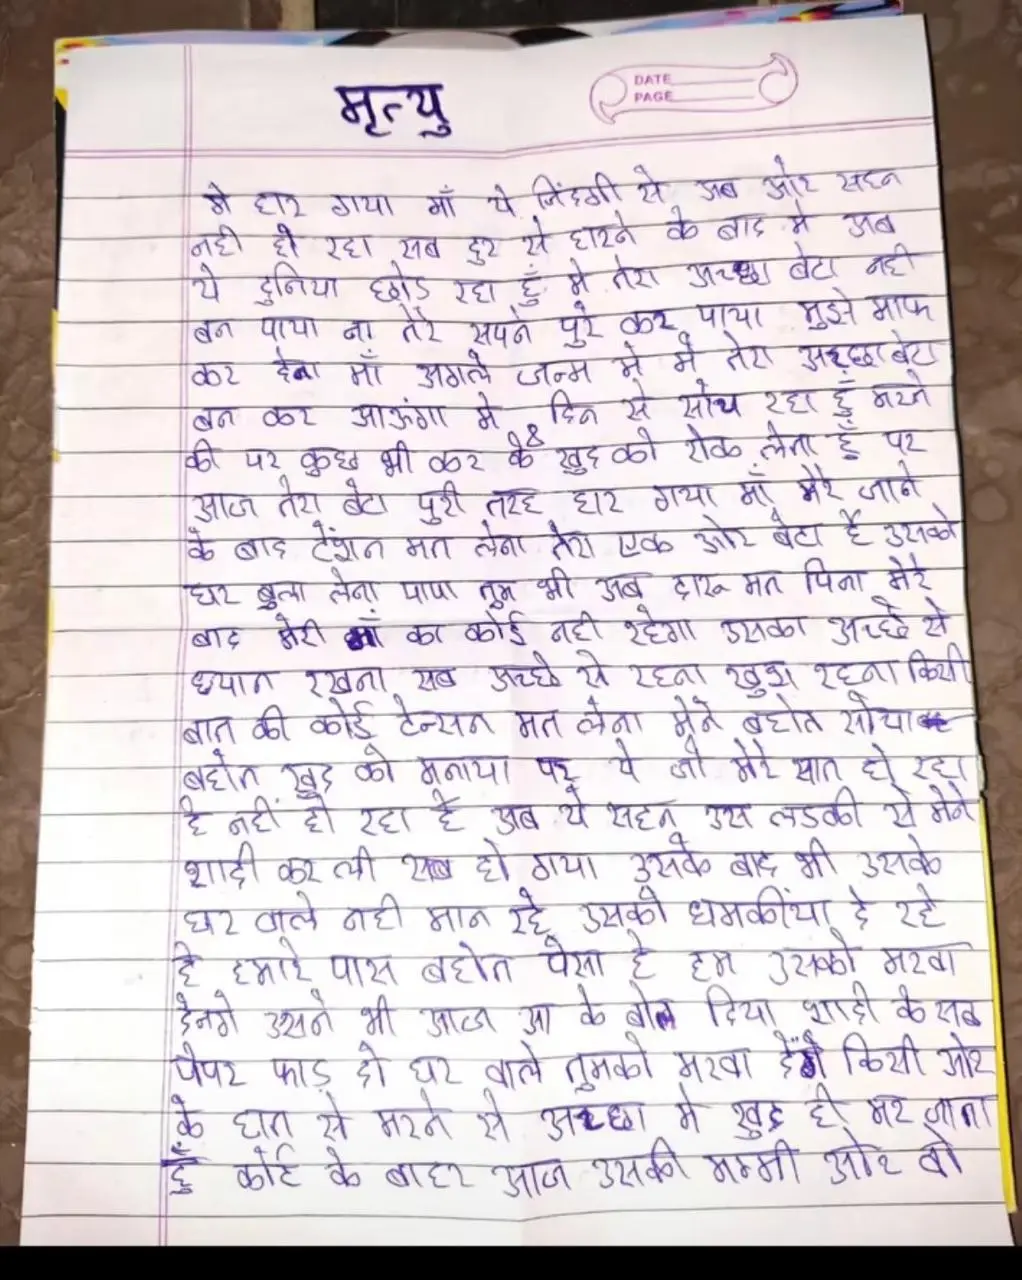 मृत्यु
DATE
PAGE
मे हार गया माँ ये जिंदगी से अब ओर सहन
नही हो रहा सब दुर से हारने के बाद मे अब
ये दुनिया छोड रहा हुँ मे तेरा अच्छा बेटा नही
बन पाया ना तेरे सपने पुरे कर पाया मुझे माफ
कर देना माँ अगले जन्म मे मे तेरा अच्छा बेटा
बन कर आऊंगा मे 8 दिन से सोच रहा हुँ मरने
की पर कुछ भी कर के खुद को रोक लेना हुँ पर
आज तेरा बेटा पुरी तरह हार गया माँ मेरे जाने
के बाद टेंशन मत लेना तेरा एक ओर बेटा है उसको
घर बुला लेना पापा तुम भी अब दारू मत पिना मेरे
बाद मेरी माँ का कोई नही रहेगा उसका अच्छे से
ध्यान रखना सब अच्छे से रहना खुश रहना किसी
बात की कोई टेन्सन मत लेना मेने बहोत सोचा
बहोत खुद को मनाया पर ये जो मेरे सात हो रहा
हे नहीं हो रहा है अब ये सहन उस लडकी से मेने
शादी कर ली सब हो गया उसके बाद भी उसके
घर वाले नही मान रहे उसको धमकींया दे रहे
हे हमारे पास बहोत पेसा हे हम उसको मरवा
देनगे उसने भी आज आ के बोल दिया शादी के सब
पेपर फाड़ दो घर वाले तुमको मरवा देंगे किसी ओर
के हात से मरने से अच्छा मे खुद ही मर जाना
हुँ कोर्ट के बाहर आज उसकी मम्मी ओर वो